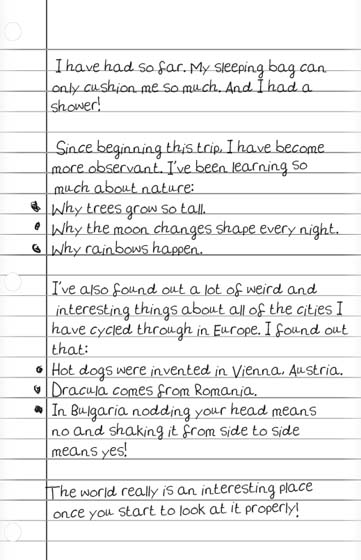 I have had so far. My sleeping bag can
only cushion me so much. And I had a
shower!
Since beginning this trip, I have become
more observant. I've been learning so
much about nature:
Why trees grow so tall.
Why the moon changes shape every night.
Why rainbows happen.
I've also found out a lot of weird and
interesting things about all of the cities I
have cycled through in Europe. I found out
that:
Hot dogs were invented in Vienna, Austria.
Dracula comes from Romania.
In Bulgaria nodding your head means
no and shaking it from side to side
means yes!
The world really is an interesting place
once you start to look at it properly!